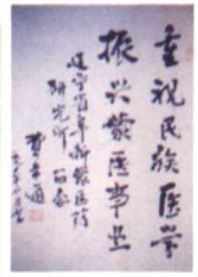 重视民族医学
振兴蒙医事业
辽宁省阜新蒙医药
研究所
费孝通